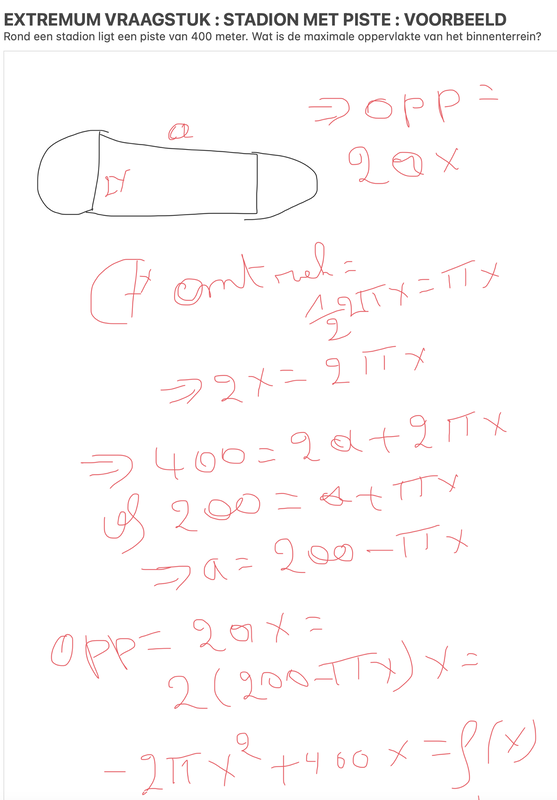 EXTREMUM VRAAGSTUK : STADION MET PISTE : VOORBEELD
Rond een stadion ligt een piste van 400 meter. Wat is de maximale oppervlakte van het binnenterrein?
⇒ opp =
2ax
a
x
omtrek =
1/2 2πx = πx
⇒ 2x = 2πx
⇒ 400 = 2a + 2πx
of 200 = a + πx
⇒ a = 200 - πx
opp = 2ax =
2(200-πx)x =
-2πx² + 400x = f(x)